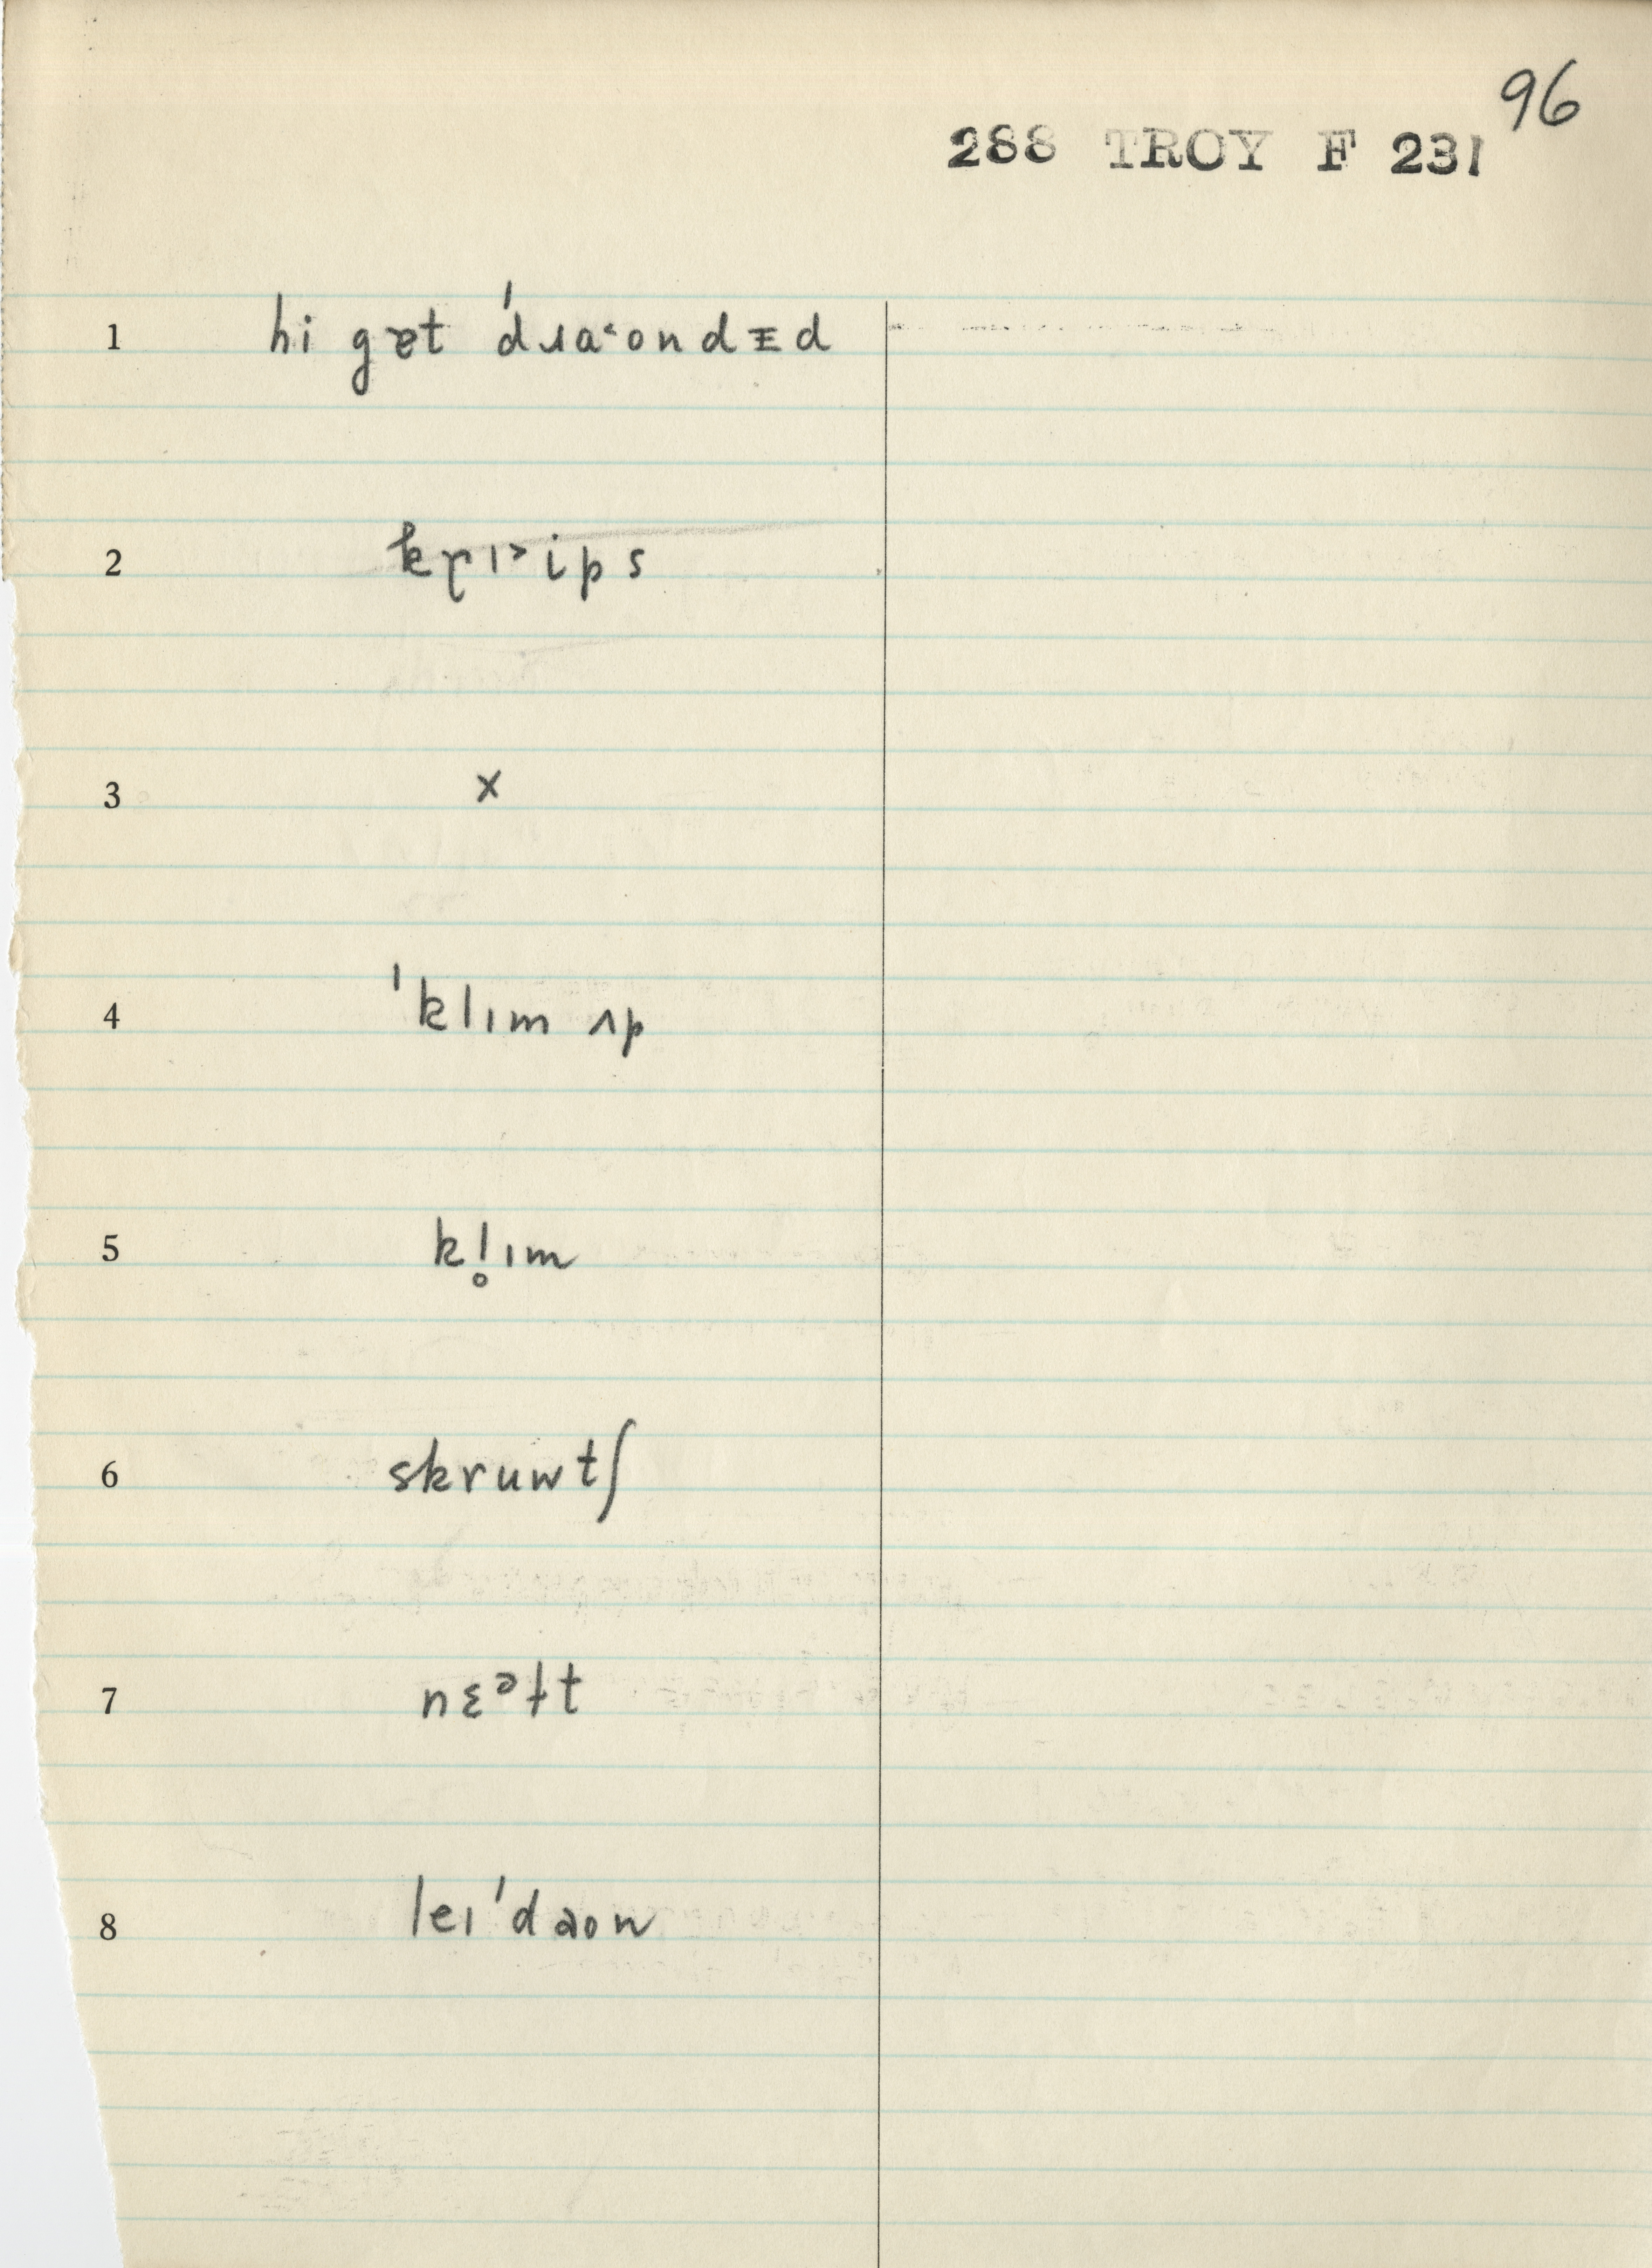 96
288 TROY F 231
1 hi gɐt ˈdɹa˂ondᵻd
2 kɽı˃ips
3 x
4 ˈklım ʌp
5 kl̥ım
6 skruwtʃ
7 nɛᵊɫt
8 leıˈdaon